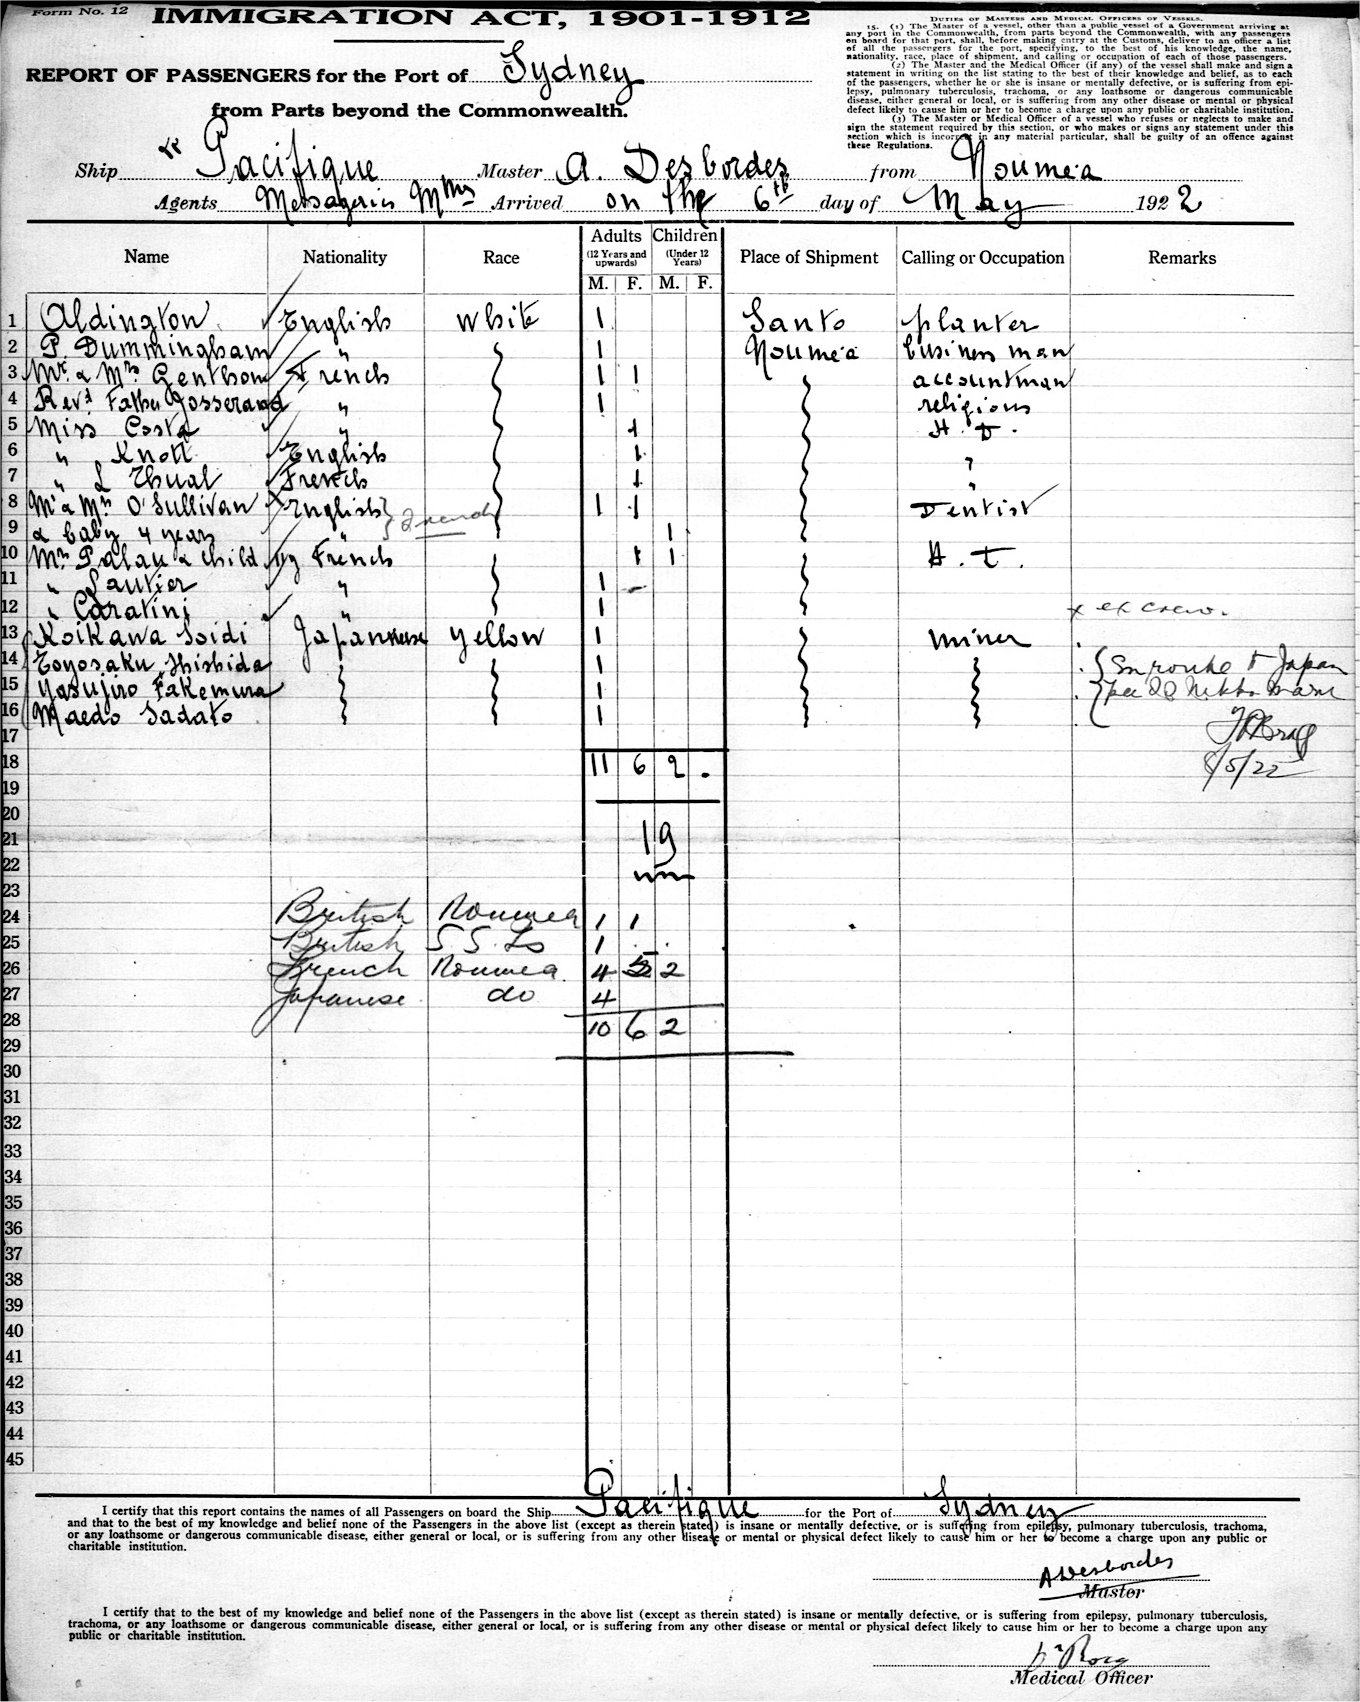 Form No. 12
IMMIGRATION ACT, 1901-1912
REPORT OF PASSENGERS for the Port of Sydney
from Parts beyond the Commonwealth.
DUTIES OF MASTERS AND MEDICAL OFFICERS OF VESSELS.
15. (1) The Master of a vessel, other than a public vessel of a Government arriving at
any port in the Commonwealth, from parts beyond the Commonwealth, with any passengers
on board for that port, shall, before making entry at the Customs, deliver to an officer a list
of all the passengers for the port, specifying, to the best of his knowledge, the name,
nationality, race, place of shipment, and calling or occupation of each of those passengers.
(2) The Master and the Medical Officer (if any) of the vessel shall make and sign a
statement in writing on the list stating to the best of their knowledge and belief, as to each
of the passengers, whether he or she is insane or mentally defective, or is suffering from epi-
lepsy, pulmonary tuberculosis, trachoma, or any loathsome or dangerous communicable
disease, either general or local, or is suffering from any other disease or mental or physical
defect likely to cause him or her to become a charge upon any public or charitable institution.
(3) The Master or Medical Officer of a vessel who refuses or neglects to make and
sign the statement required by this section, or who makes or signs any statement under this
section which is incorrect in any material particular, shall be guilty of an offence against
these Regulations.
Ship Pacifique Master A. Desbordes from Nouméa
Agents Messageries Mmes Arrived on the 6th day of May 1922
Name Nationality Race Adults (12 Years and upwards) Children (Under 12 Years) Place of Shipment Calling or Occupation Remarks
M. F. M. F.
1 Aldington English White 1 Santo planter
2 P. Dummingham " 1 Nouméa business man
3 Mr. & Mrs Genthon French 1 1 accountman
4 Revd Father Gosserand " 1 religious
5 Miss Costa " 1 H. D.
6 " Knott English 1 "
7 " L Thual French 1 "
8 Mr & Mrs O'Sullivan English 1 1 Dentist
French
9 & baby 4 years " 1
10 Mrs Palau & child French 1 1 H. D.
11 " Lautier " 1
12 " Coratini " 1 x ex crew.
13 Koikawa Soidi Japanese yellow 1 miner
14 Toyosaku Shishida 1 En route to Japan
15 Yasujiro Fakemura 1 per SS Nikko Maru
16 Maedo Sadato 1
17
18 11 6 2 .
8/5/22
19
20
21 19
22
23
24 British Noumea 1 1
25 British S.S. Is 1
26 French Noumea 4 5 2
27 Japanese do 4
28 10 6 2
29
30
31
32
33
34
35
36
37
38
39
40
41
42
43
44
45
I certify that this report contains the names of all Passengers on board the Ship Pacifique for the Port of Sydney
and that to the best of my knowledge and belief none of the Passengers in the above list (except as therein stated) is insane or mentally defective, or is suffering from epilepsy, pulmonary tuberculosis, trachoma,
or any loathsome or dangerous communicable disease, either general or local, or is suffering from any other disease or mental or physical defect likely to cause him or her to become a charge upon any public or
charitable institution.
ADesbordes
Master
I certify that to the best of my knowledge and belief none of the Passengers in the above list (except as therein stated) is insane or mentally defective, or is suffering from epilepsy, pulmonary tuberculosis,
trachoma, or any loathsome or dangerous communicable disease, either general or local, or is suffering from any other disease or mental or physical defect likely to cause him or her to become a charge upon any
public or charitable institution.
Medical Officer